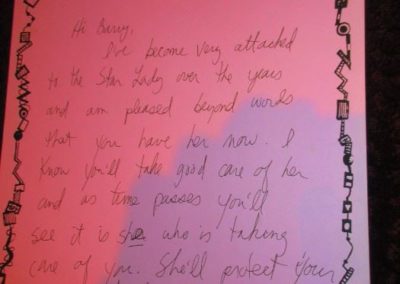 Hi Barry,
I've become very attached
to the Star Lady over the years
and am pleased beyond words
that you have her now. I
know you'll take good care of her
and as time passes you'll
see it is she who is taking
care of you. She'll protect your